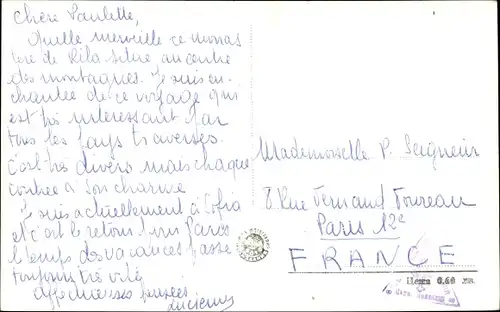 Chère Paulette,
Quelle merveille ce monas
tère de Rila situé au centre
des montagnes. Je suis en-
chantée de ce voyage qui
est très intéressant par
tous les pays traversés.
c'est très divers mais chaque
contrée a son charme
Je suis actuellement à Sofia
et c'est le retour vers Paris
le temps des vacances passe
toujours très vite
Affectueuses pensées
Lucienne
Mademoiselle P. Seigneur
8 Rue Fernand Foureau
Paris 12e
FRANCE
Цена 0.60 лв.